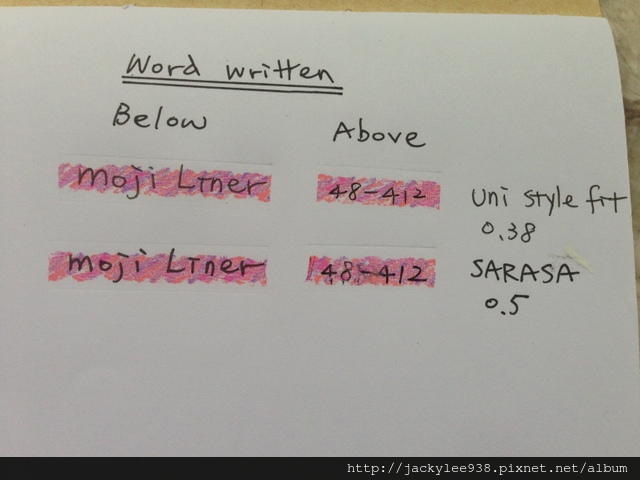 Word written
Below Above
moji Liner 48-412 uni style fit
0.38
moji Liner 48-412 SARASA
0.5
http://jackylee938.pixnet.net/album